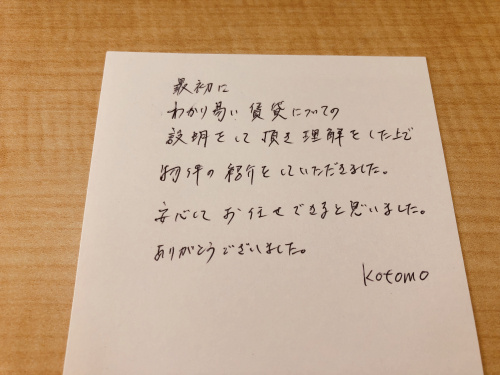 最初に
わかり易い賃貸についての
説明をして頂き理解をした上で
物件の紹介をしていただきました。
安心してお任せできると思いました。
ありがとうございました。
kotomo